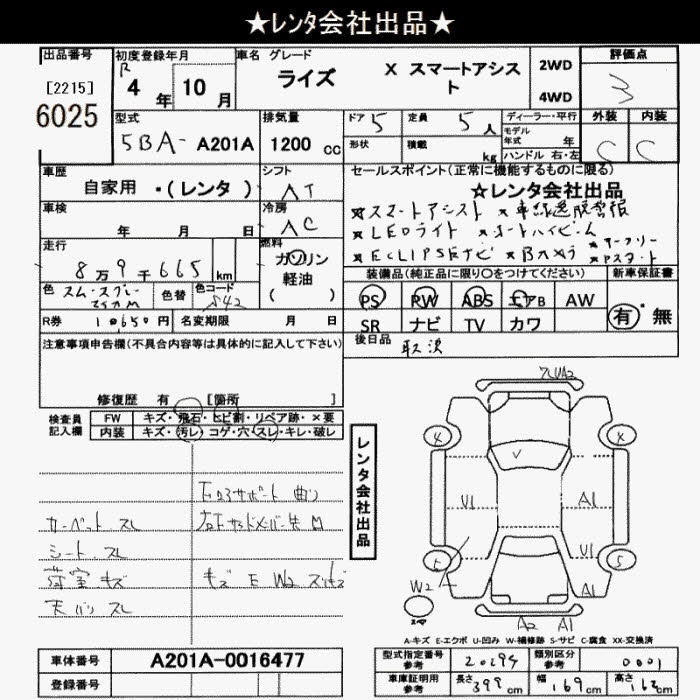 ★レンタ会社出品★
出品番号
[2215]
6025
初度登録年月
R
4 年 10 月
車名 グレード
ライズ X スマートアシスト
2WD
4WD
評価点
3
外装 内装
C C
型式
5BA- A201A
排気量
1200 cc
ドア 5
定員 5 人
形状
積載 kg
ディーラー・平行
モデル年式 年
ハンドル 右・左
車歴
自家用 ・(レンタ)
シフト
AT
車検
年 月 日
冷房
AC
走行
8万9千665 km
燃料
ガソリン
軽油
( )
色
色替
色コード
S42
R券 10650円
名変期限 月 日
セールスポイント(正常に機能するものに限る)
☆レンタ会社出品
★スマートアシスト ★車線逸脱警報
★LEDライト ★オートハイビーム
★ECLIPSEナビ ★Bカメラ
装備品(純正品に限り○をつけてください)
PS PW ABS エアB AW
SR ナビ TV カワ
新車保証書
有・無
後日品
取説
注意事項申告欄(不具合内容等は具体的に記入して下さい)
修復歴 有 [箇所 ]
検査員記入欄
FW キズ・飛石・ヒビ割・リペア跡・×要
内装 キズ・汚レ・コゲ・穴・スレ・キレ・破レ
カーペット スレ
シート スレ
荷室 キズ
天バリ スレ
キズ E W2
レンタ会社出品
4 X
V
U1 A1
U1
5
W2 A
A1
A2 A1
A-キズ E-エクボ U-凹み W-補修跡 S-サビ C-腐食 XX-交換済
車体番号 A201A-0016477
登録番号
型式指定番号 参考 20294
類別区分 参考 0001
車庫証明用 参考 長さ 399 cm 幅 169 cm 高さ 162 cm